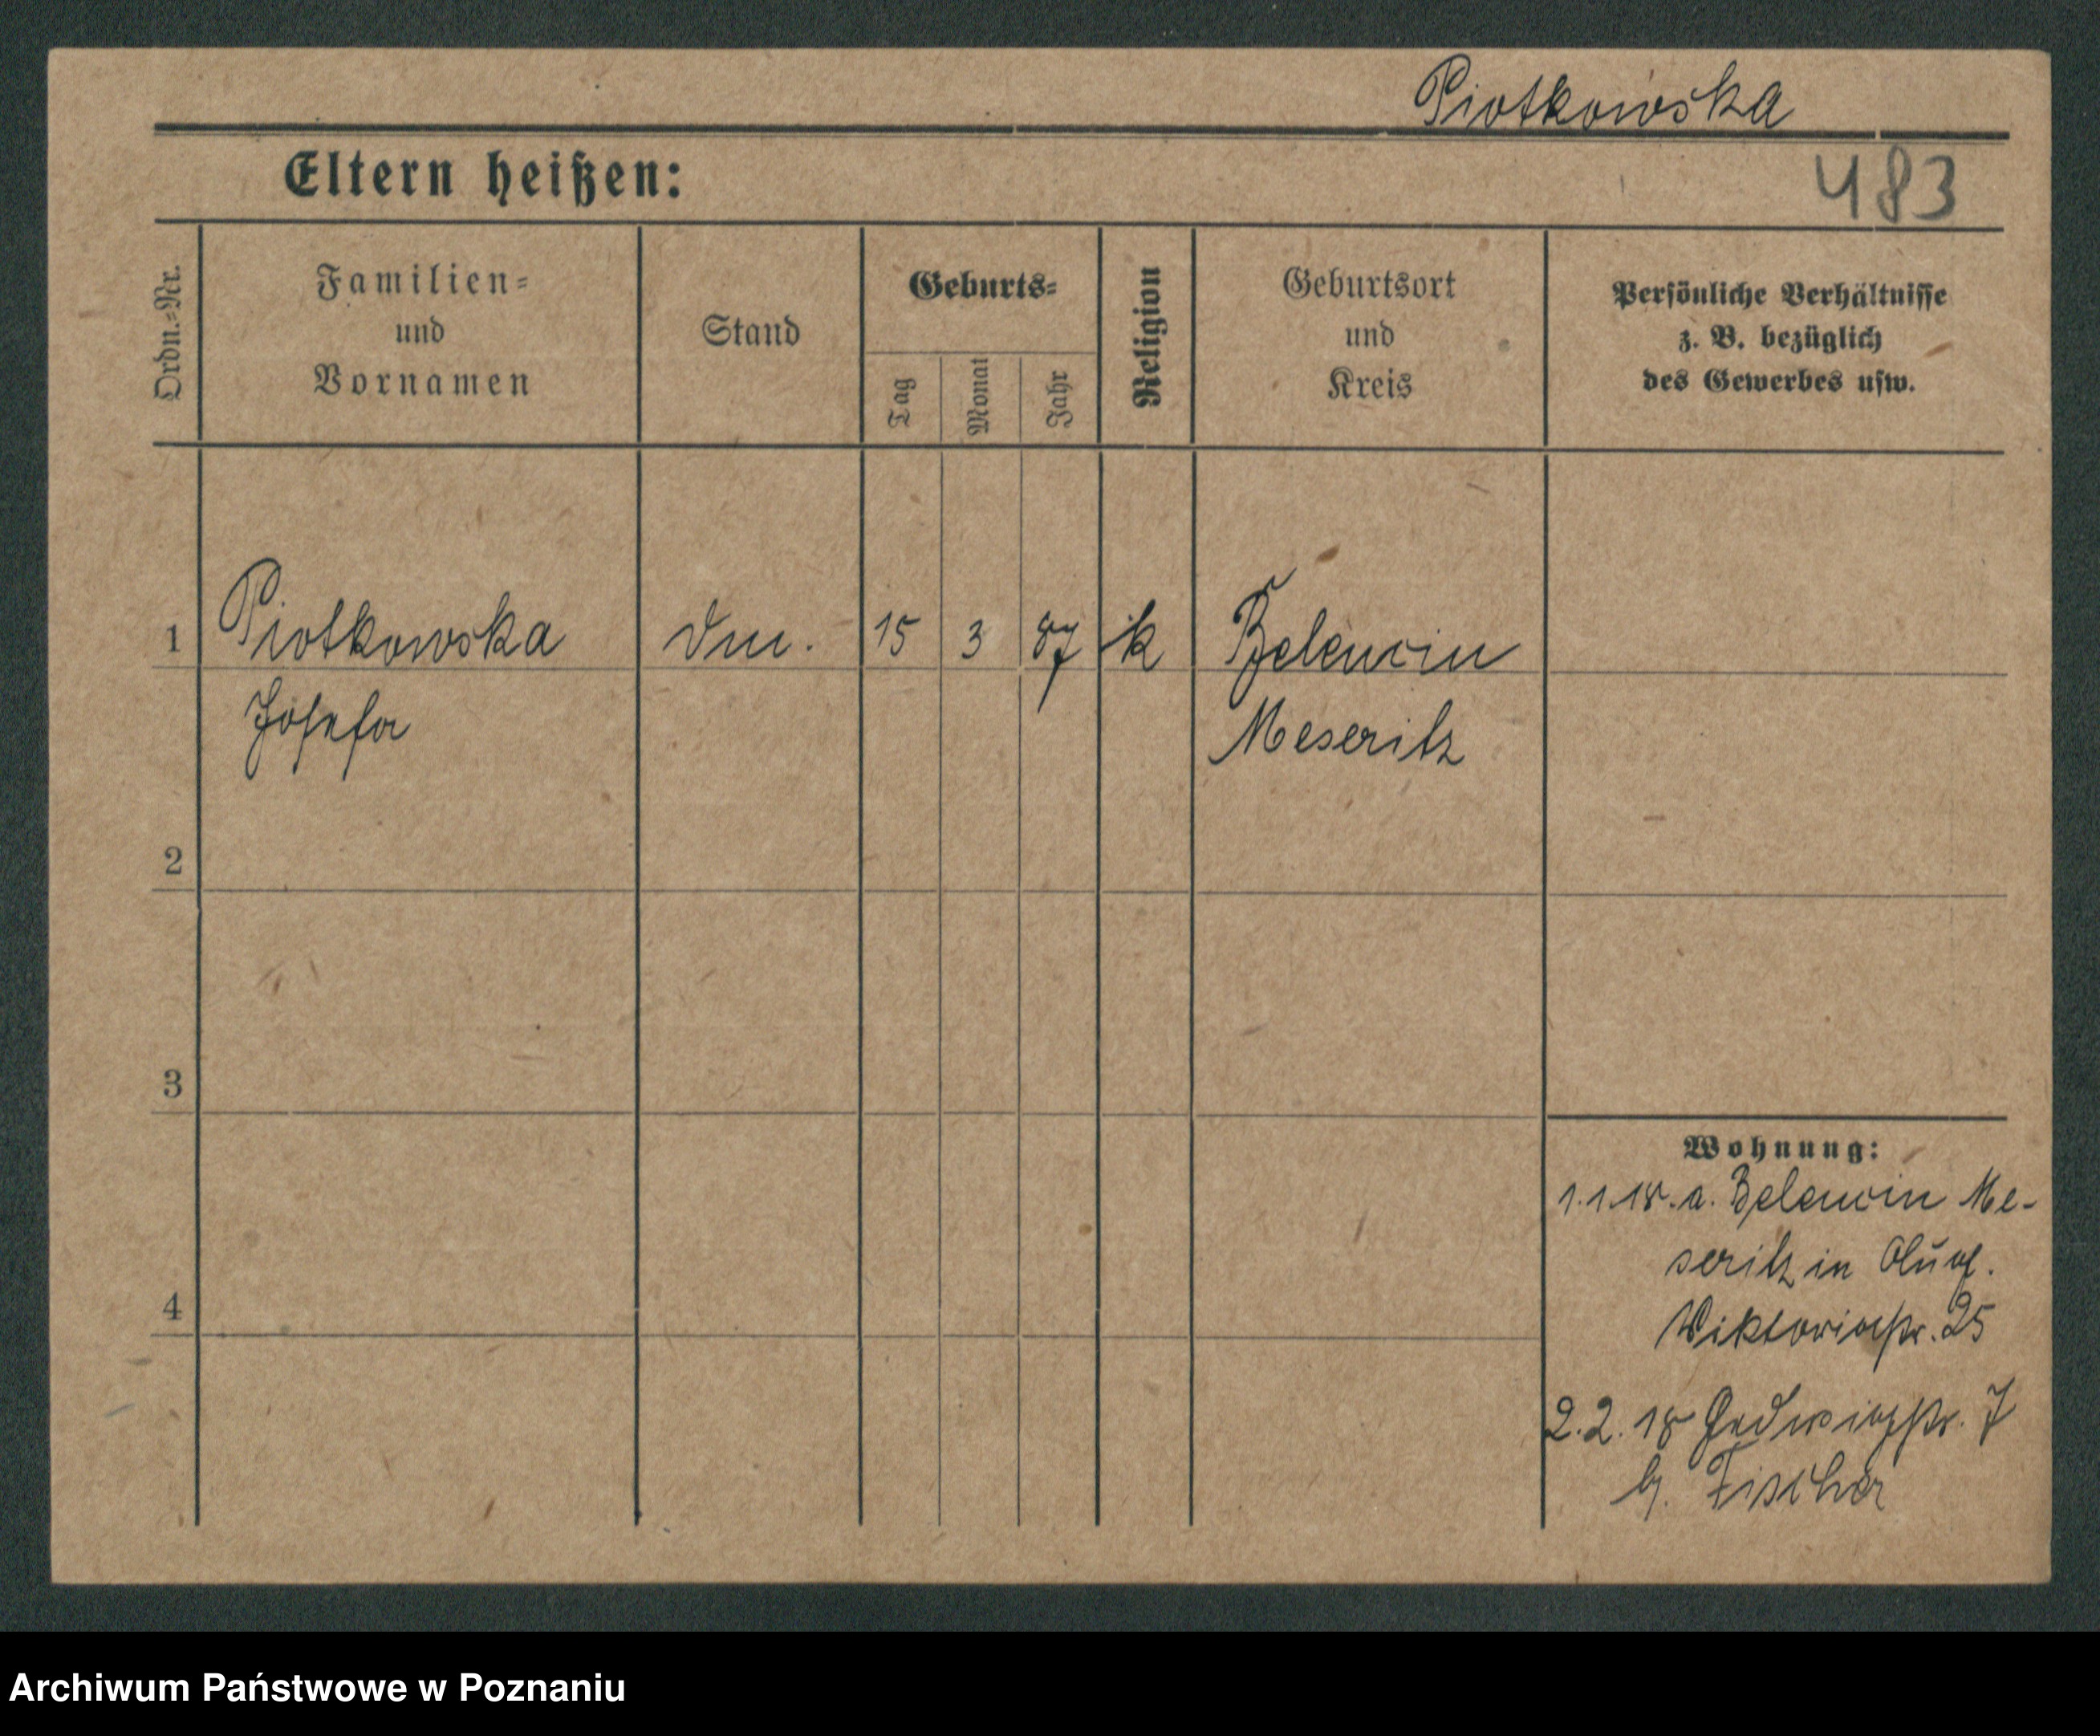 Piotkowska
Eltern heißen:
483
Ordn.-Nr.
Familien-
und
Vornamen
Stand
Geburts-
Tag
Monat
Jahr
Religion
Geburtsort
und
Kreis
Persönliche Verhältnisse
z. B. bezüglich
des Gewerbes usw.
1 Piotkowska 15 3 87 k Belencin
Josefa Meseritz
2
3
Wohnung:
1.1.18. a. Belencin Me-
seritz in
4
Viktoriastr. 25
2.2.18 Hedwigstr. 7
b. Fischer
Archiwum Państwowe w Poznaniu